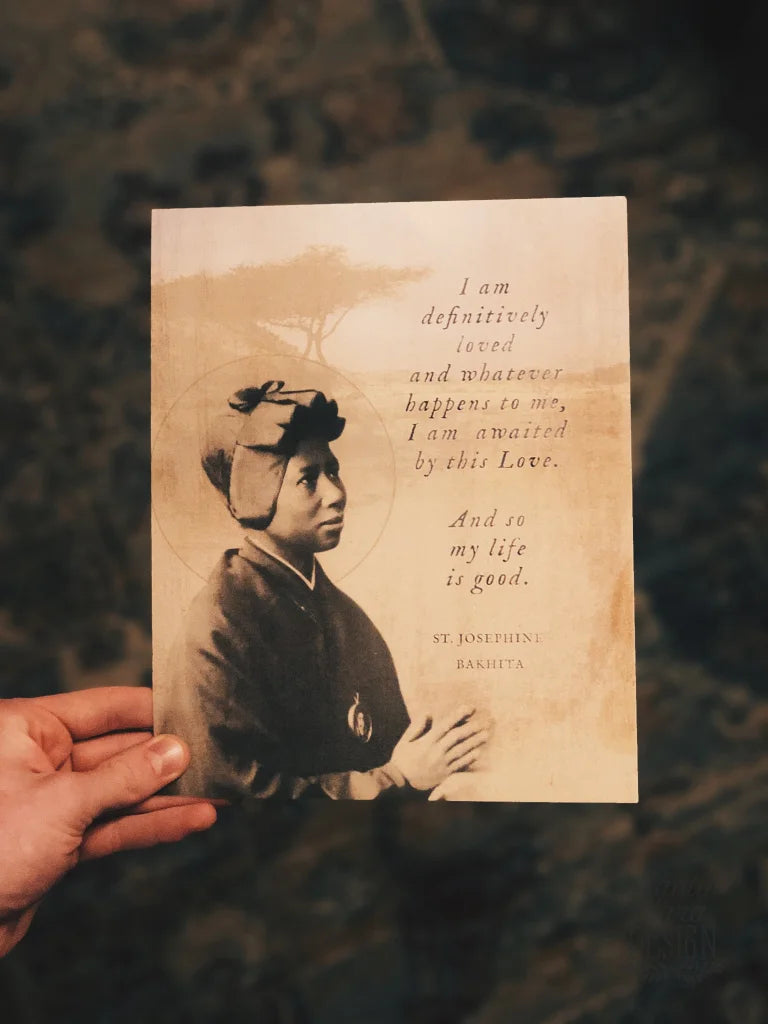 I am
definitively
loved
and whatever
happens to me,
I am awaited
by this Love.
And so
my life
is good.
ST. JOSEPHINE
BAKHITA
DESIGN